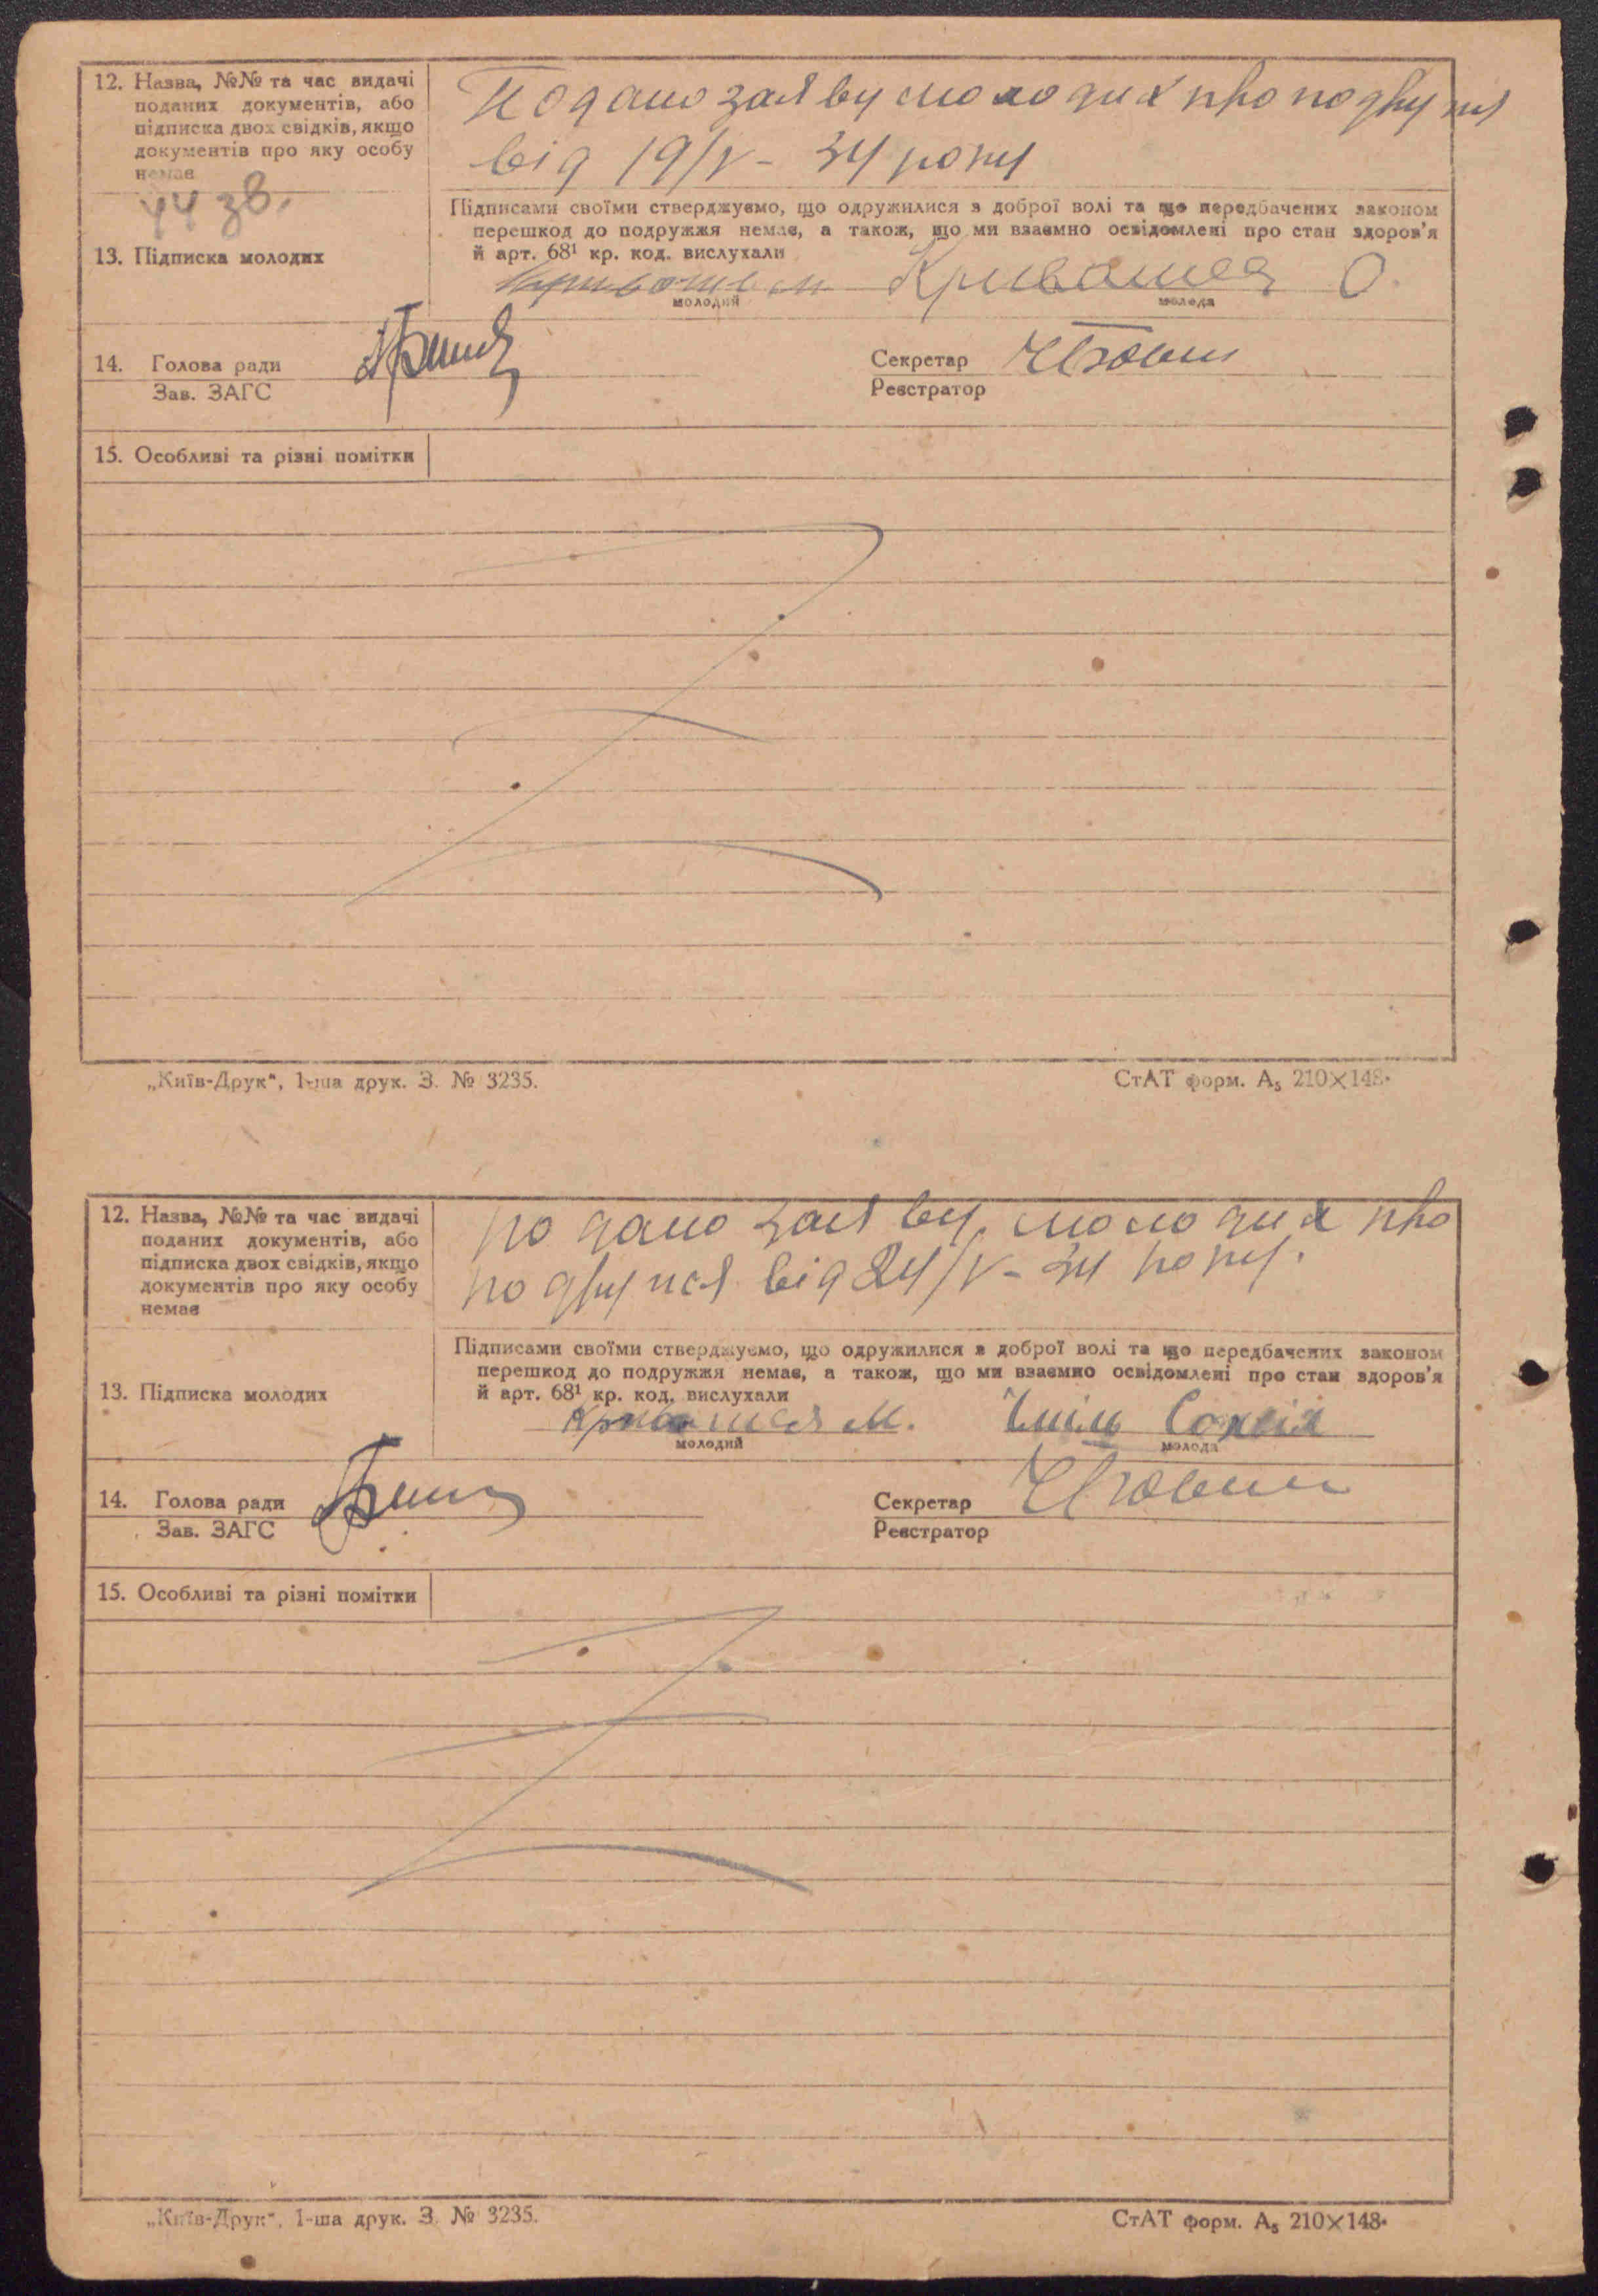 12. Назва, №№ та час видачі
поданих документів, або
підписка двох свідків, якщо
документів про яку особу
немає
Подано заяву молодих про подруися
від 19/V - 34 року
44 зв.
13. Підписка молодих
Підписами своїми стверджуємо, що одружилися з доброї волі та що передбачених законом
перешкод до подружжя немає, а також, що ми взаємно освідомлені про стан здоров'я
й арт. 68¹ кр. код. вислухали
Кривошея О.
молодий молода
14. Голова ради
Зав. ЗАГС
Секретар
Реєстратор
15. Особливі та різні помітки
„Київ-Друк“, 1-ша друк. З. № 3235.
СтАТ форм. А₅ 210×148.
12. Назва, №№ та час видачі
поданих документів, або
підписка двох свідків, якщо
документів про яку особу
немає
подано заяву молодих про
подруися від 24/V - 34 року.
13. Підписка молодих
Підписами своїми стверджуємо, що одружилися з доброї волі та що передбачених законом
перешкод до подружжя немає, а також, що ми взаємно освідомлені про стан здоров'я
й арт. 68¹ кр. код. вислухали
Кривошея М.
молодий молода
14. Голова ради
Зав. ЗАГС
Секретар
Реєстратор
15. Особливі та різні помітки
„Київ-Друк“, 1-ша друк. З. № 3235.
СтАТ форм. А₅ 210×148.